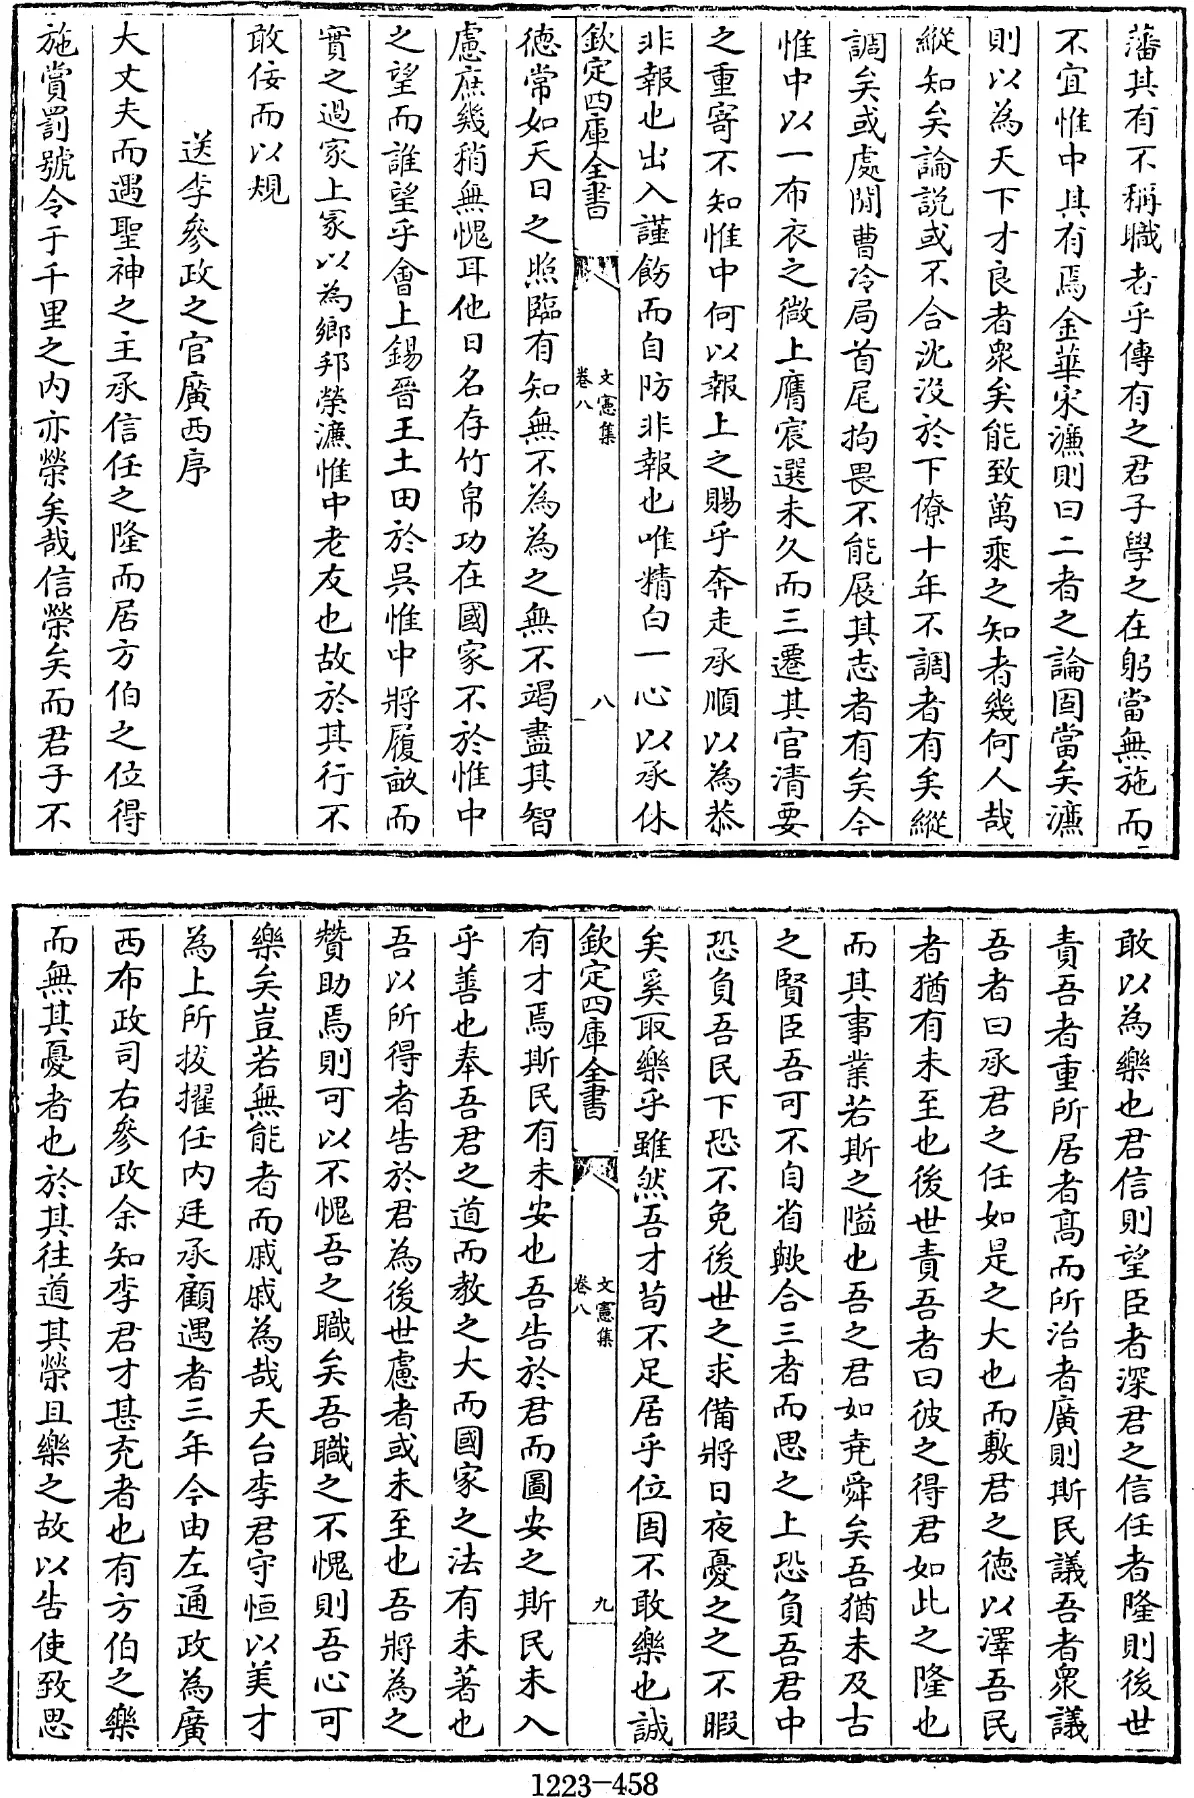 藩其有不稱職者乎傳有之君子學之在躬當無施而
不宜惟中其有焉金華宋濂則曰二者之論固當矣濂
則以為天下才良者衆矣能致萬乘之知者幾何人哉
縱知矣論説或不合沈没於下僚十年不調者有矣縱
調矣或處閒曹冷局首尾拘畏不能展其志者有矣今
惟中以一布衣之微上膺宸選未久而三遷其官清要
之重寄不知惟中何以報上之賜乎奔走承順以為恭
非報也出入謹飭而自防非報也唯精白一心以承休
欽定四庫全書
文憲集
卷八
八
德常如天日之照臨有知無不為為之無不竭盡其智
慮庶幾稍無愧耳他日名存竹帛功在國家不於惟中
之望而誰望乎會上錫晉王土田於吳惟中將履畝而
實之過家上冢以為鄉邦榮濂惟中老友也故於其行不
敢佞而以規
送李參政之官廣西序
大丈夫而遇聖神之主承信任之隆而居方伯之位得
施賞罰號令于千里之内亦榮矣哉信榮矣而君子不
敢以為樂也君信則望臣者深君之信任者隆則後世
責吾者重所居者高而所治者廣則斯民議吾者衆議
吾者曰承君之任如是之大也而敷君之德以澤吾民
者猶有未至也後世責吾者曰彼之得君如此之隆也
而其事業若斯之隘也吾之君如堯舜矣吾猶未及古
之賢臣吾可不自省歟合三者而思之上恐負吾君中
恐負吾民下恐不免後世之求備將日夜憂之之不暇
矣奚取樂乎雖然吾才苟不足居乎位固不敢樂也誠
欽定四庫全書
文憲集
卷八
九
有才焉斯民有未安也吾告於君而圖安之斯民未入
乎善也奉吾君之道而教之大而國家之法有未著也
吾以所得者告於君為後世慮者或未至也吾將為之
贊助焉則可以不愧吾之職矣吾職之不愧則吾心可
樂矣豈若無能者而戚戚為哉天台李君守恒以美才
為上所拔擢任内廷承顧遇者三年今由左通政為廣
西布政司右參政余知李君才甚充者也有方伯之樂
而無其憂者也於其往道其榮且樂之故以告使致思
1223-458